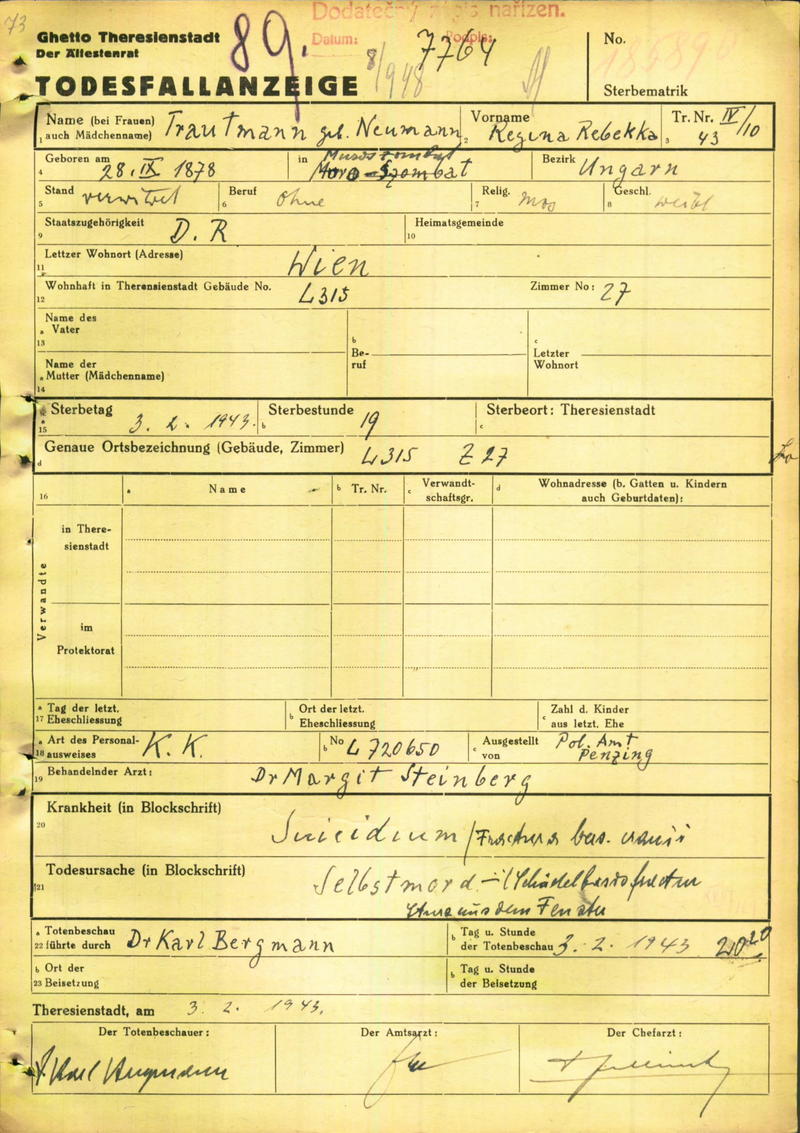 73
Dodatečný zápis nařízen.
Ghetto Theresienstadt
Der Ältestenrat
89.
Datum:
Podpis:
8/1948
7764
No.
TODESFALLANZEIGE
Sterbematrik
Name (bei Frauen) Trautmann geb. Neumann Vorname Regina Rebekka Tr. Nr. IV/10
1 auch Mädchenname) 2 3 43
Geboren am 28. IX 1878 in Bezirk Ungarn
4
Stand verwitwet Beruf ohne Relig. mos Geschl. weibl
5 6 7 8
Staatszugehörigkeit D. R Heimatsgemeinde
9 10
Lettzer Wohnort (Adresse) Wien
11
Wohnhaft in Therensienstadt Gebäude No. L315 Zimmer No: 27
12
Name des
a Vater
13
b Beruf
c Letzter Wohnort
Name der
a Mutter (Mädchenname)
14
a Sterbetag 3. 2. 1943. Sterbestunde 19 Sterbeort: Theresienstadt
15 b c
Genaue Ortsbezeichnung (Gebäude, Zimmer) L315 Z 27
d
16 a Name b Tr. Nr. c Verwandtschaftsgr. d Wohnadresse (b. Gatten u. Kindern auch Geburtdaten):
Verwandte
in Theresienstadt
im Protektorat
a Tag der letzt. b Ort der letzt. c Zahl d. Kinder
17 Eheschliessung Eheschliessung aus letzt. Ehe
a Art des Personal- K. K. b No L 720650 c Ausgestellt Pol. Amt
18 ausweises von Penzing
19 Behandelnder Arzt: Dr Margit Steinberg
Krankheit (in Blockschrift)
20 Suicidium / Fractura bas. cranii
Todesursache (in Blockschrift)
21 Selbstmord - Schädelbasisfractur
Sturz aus dem Fenster
a Totenbeschau Dr Karl Bergmann b Tag u. Stunde
22 führte durch der Totenbeschau 3. 2. 1943
b Ort der b Tag u. Stunde
23 Beisetzung der Beisetzung
Theresienstadt, am 3. 2. 1943.
Der Totenbeschauer: Der Amtsarzt: Der Chefarzt:
Karl Bergmann